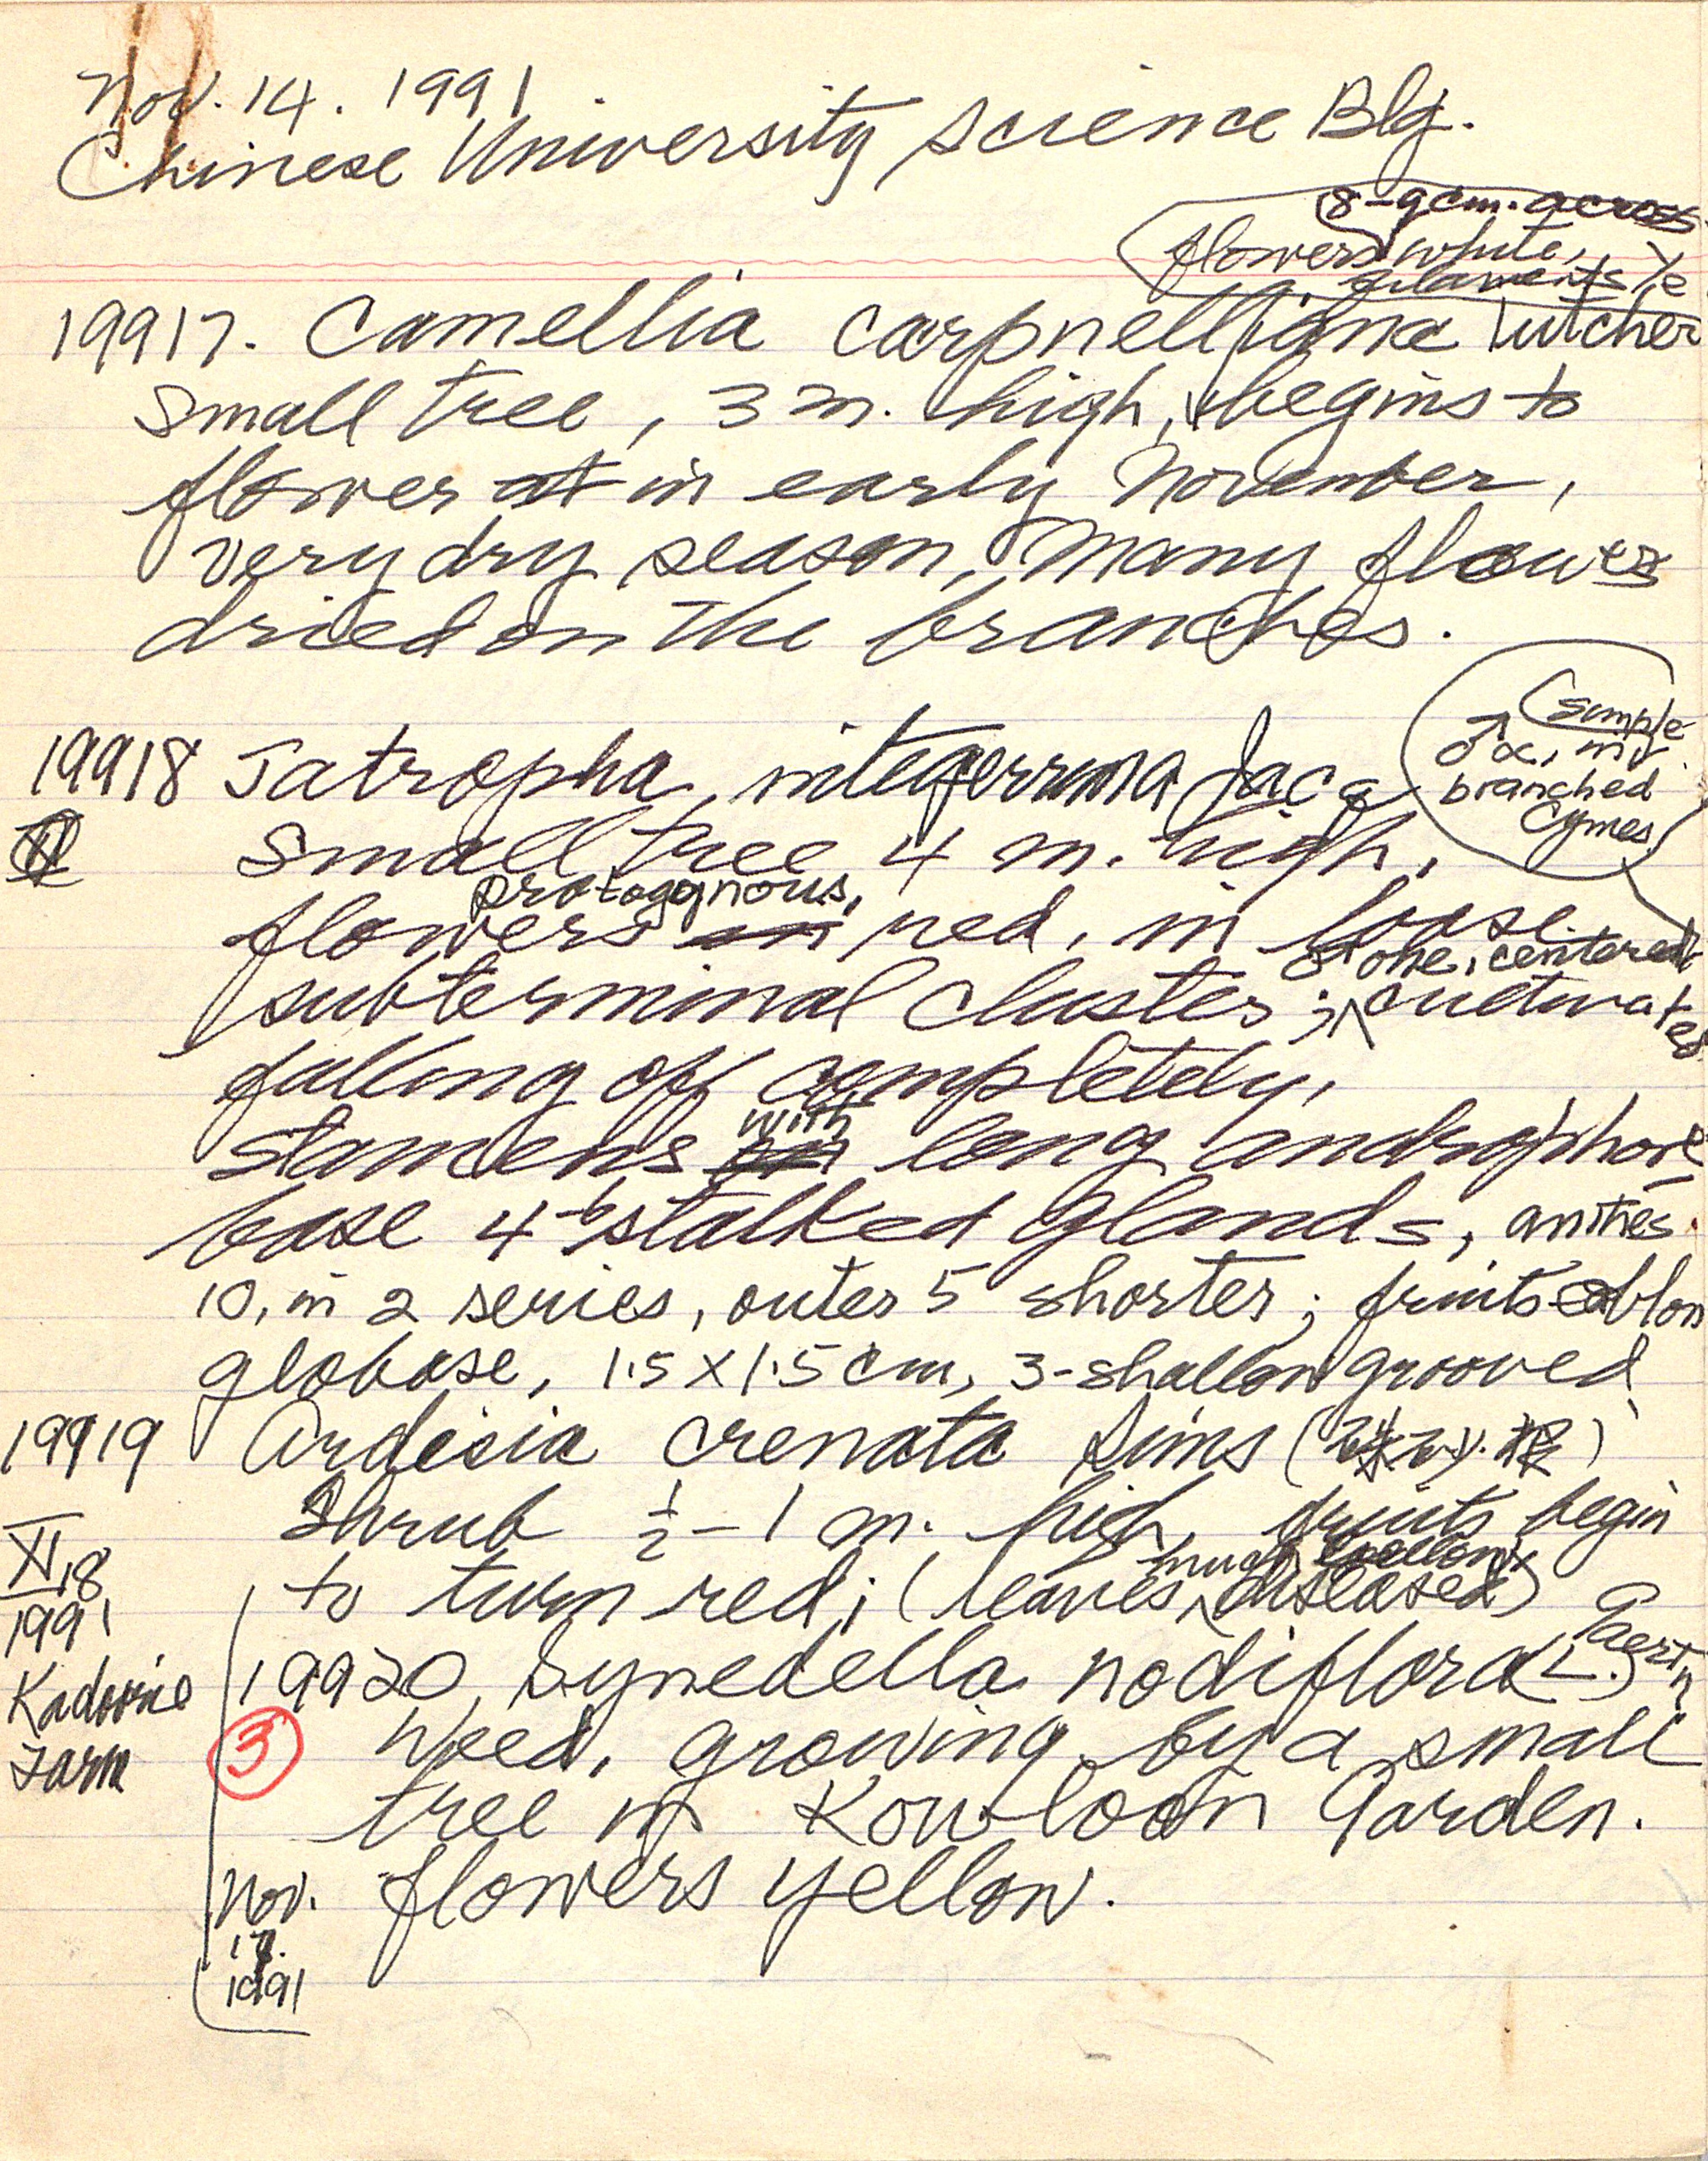 Nov. 14. 1991
Chinese University Science Blg.
8-9cm. across
flowers white,
filaments ye
19917. Camellia carpnelliana Tutcher
Small tree, 3 m. high, begins to
flower at in early November,
very dry season, Many flowers
dried on the branches.
(simple
♂ ∝, in
branched
cymes
19918 Jatropha integerrima Jacq
Small tree 4 m. high,
protogynous,
flowers in red, in loose
♀ one, centered
subterminal cluster; cultivated
falling off completely,
with
stamens on long androphore
base 4-6 stalked glands, anthes
10, in 2 series, outer 5 shorter; fruits oblon
globose, 1.5 x 1.5 cm, 3-shallow grooved
19919 Ardisia crenata Sims
Shrub ½-1 m. high, fruits begin
much
to turn red; (leaves diseased)
XI,18
1991
Kadoorie
Farm
19920 Synedella nodiflora (L.) Gaertn
③ Weed, growing by a small
tree in Kowloon Garden.
flowers yellow.
Nov.
17.
1991